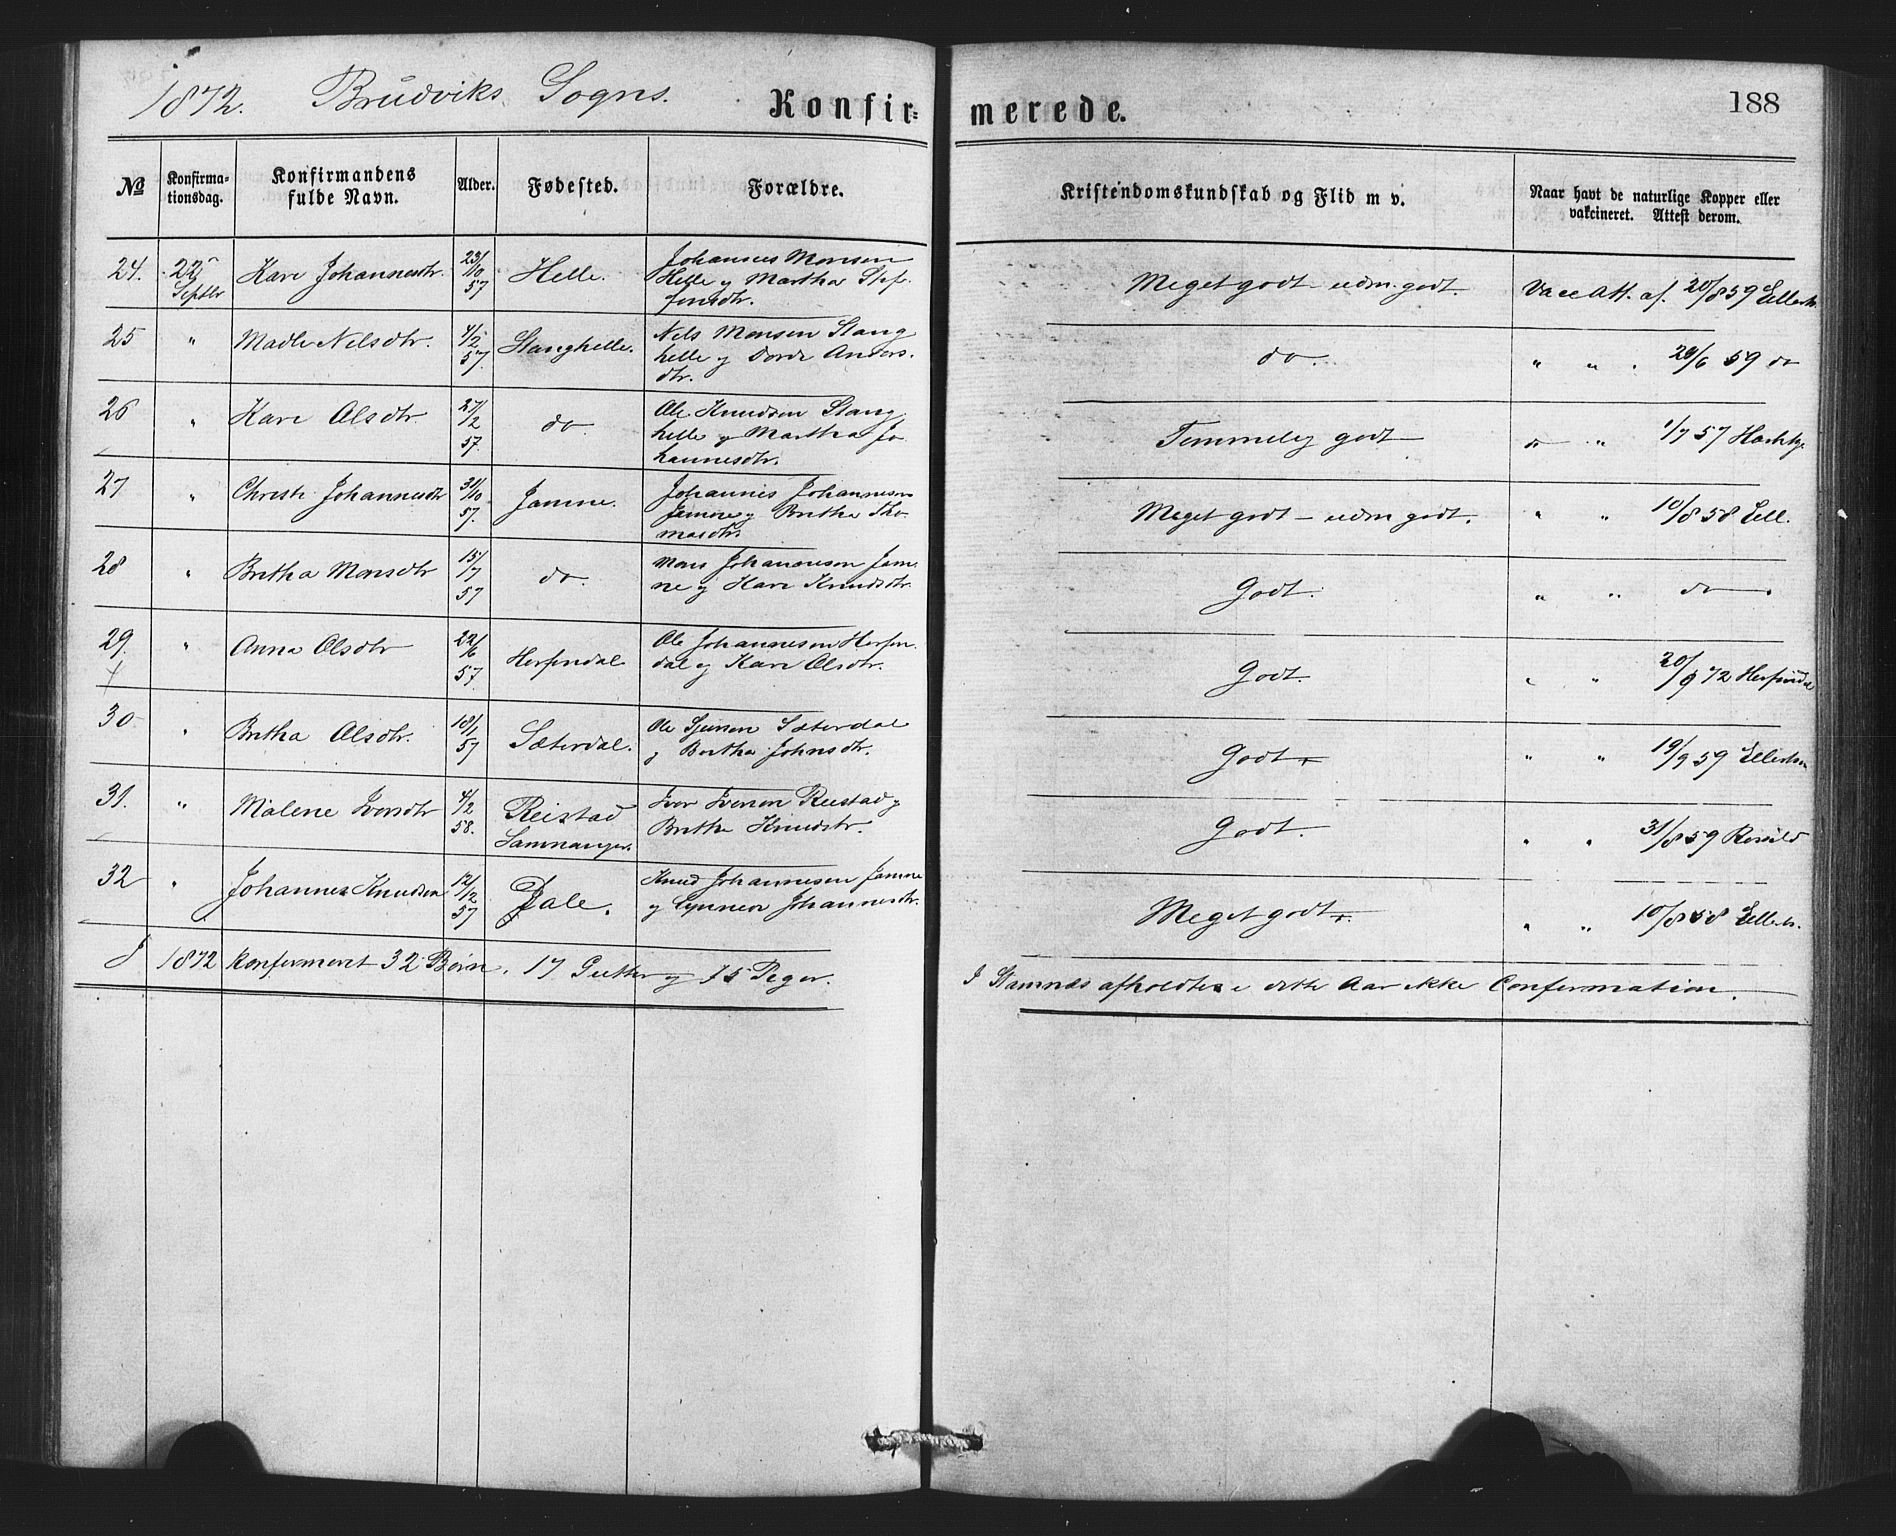 1872. Brudviks Sogns. Konfir=
merede. 188
No Konfirma-tionsdag. Konfirmandens fulde Navn. Alder. Fødested. Forældre. Kristendomskundskab og Flid m v. Naar havt de naturlige Kopper eller vakcineret. Attest derom.
24. 22 Septbr Kari Johannesdtr. 23/10 57 Helle. Johannes Monsen
Helle og Martha Stef-
fensdtr. Meget godt - udm. godt. Vacc Att. af. 20/8 59 Ellerts.
25 " Madle Nilsdtr. 4/2 57. Stanghelle. Nils Monsen Stang
helle og Dorde Anders.
dtr. do. " " . 20/6 59 do
26 " Kari Olsdtr. 27/2 57. do. Ole Knudsen Stang
helle og Martha Jo
hannesdtr. Temmelig godt do " 1/7 57
27 " Christi Johannesdtr 31/10 57. Jamne. Johannes Johannesen
Jamne og Britha Tho-
masdtr. Meget godt - udm godt. " " 10/8 58 Ell.
28 " Britha Monsdtr 15/7 57 do. Mons Johannesen Jam
ne og Kari Knudsdtr. Godt. " " do
29. " Anna Olsdtr 22/6 57. Herfindal Ole Johannesen Herfin
dal og Kari Olsdtr. Godt. " " 20/9 72 Herfindal
30 " Britha Olsdtr. 18/1 57 Sæterdal. Ole Sjursen Sæterdal
og Britha Johnsdtr. Godt " " 19/9 59 Ellertsen
31. " Malene Iversdtr 4/2 58. Reistad
Samnanger. Iver Iversen Reistad og
Britha Knudsdtr. Godt. " " 31/8 59
32 " Johannes Knudsen 12/12 57 Dale. Knud Johannesen Jamne
og Johannesdtr. Meget godt. " " 10/8 58 Ellerts.
I 1872 Konfirmeret 32 Børn. 17 Gutter og 15 Piger.
I Stamnæs afholdtes i dette Aar ikke Confirmation.